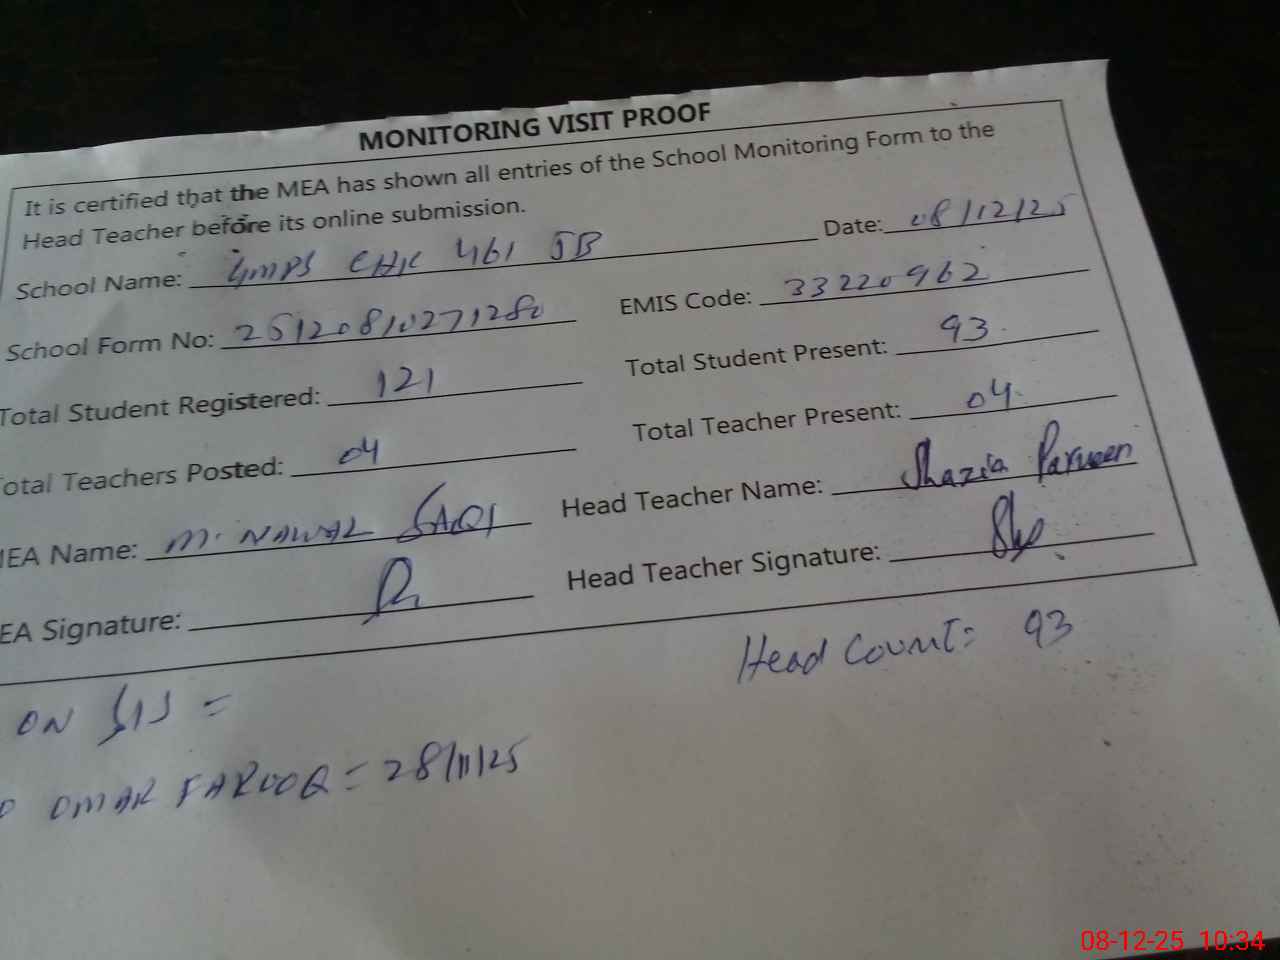 MONITORING VISIT PROOF
It is certified that the MEA has shown all entries of the School Monitoring Form to the
Head Teacher before its online submission.
School Name: GMPS CHK 461 JB Date: 08/12/25
School Form No: 25120810271280 EMIS Code: 33220962
Total Student Registered: 121 Total Student Present: 93
otal Teachers Posted: 04 Total Teacher Present: 04
EA Name: M. NAWAZ SAQI Head Teacher Name: Shazia Parveen
EA Signature: Head Teacher Signature:
Head Count: 93
ON SIS =
OMAR FAROOQ = 28/11/25
08-12-25 10:34